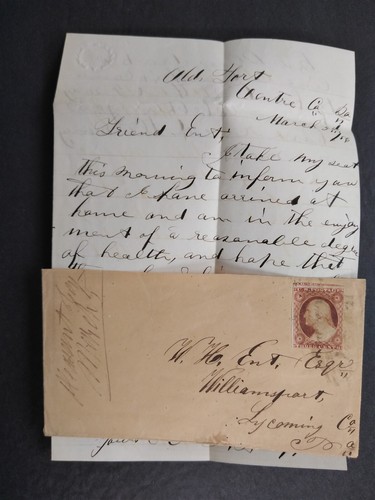 Old Fort
Centre Co Pa
March
Friend Ent,
I take my seat
this morning to inform you
that I have arrived at
home and am in the enjoy
ment of a reasonable degree
of health, and hope that
W. H. Ent, Esqr
Williamsport,
Lycoming Co
Pa